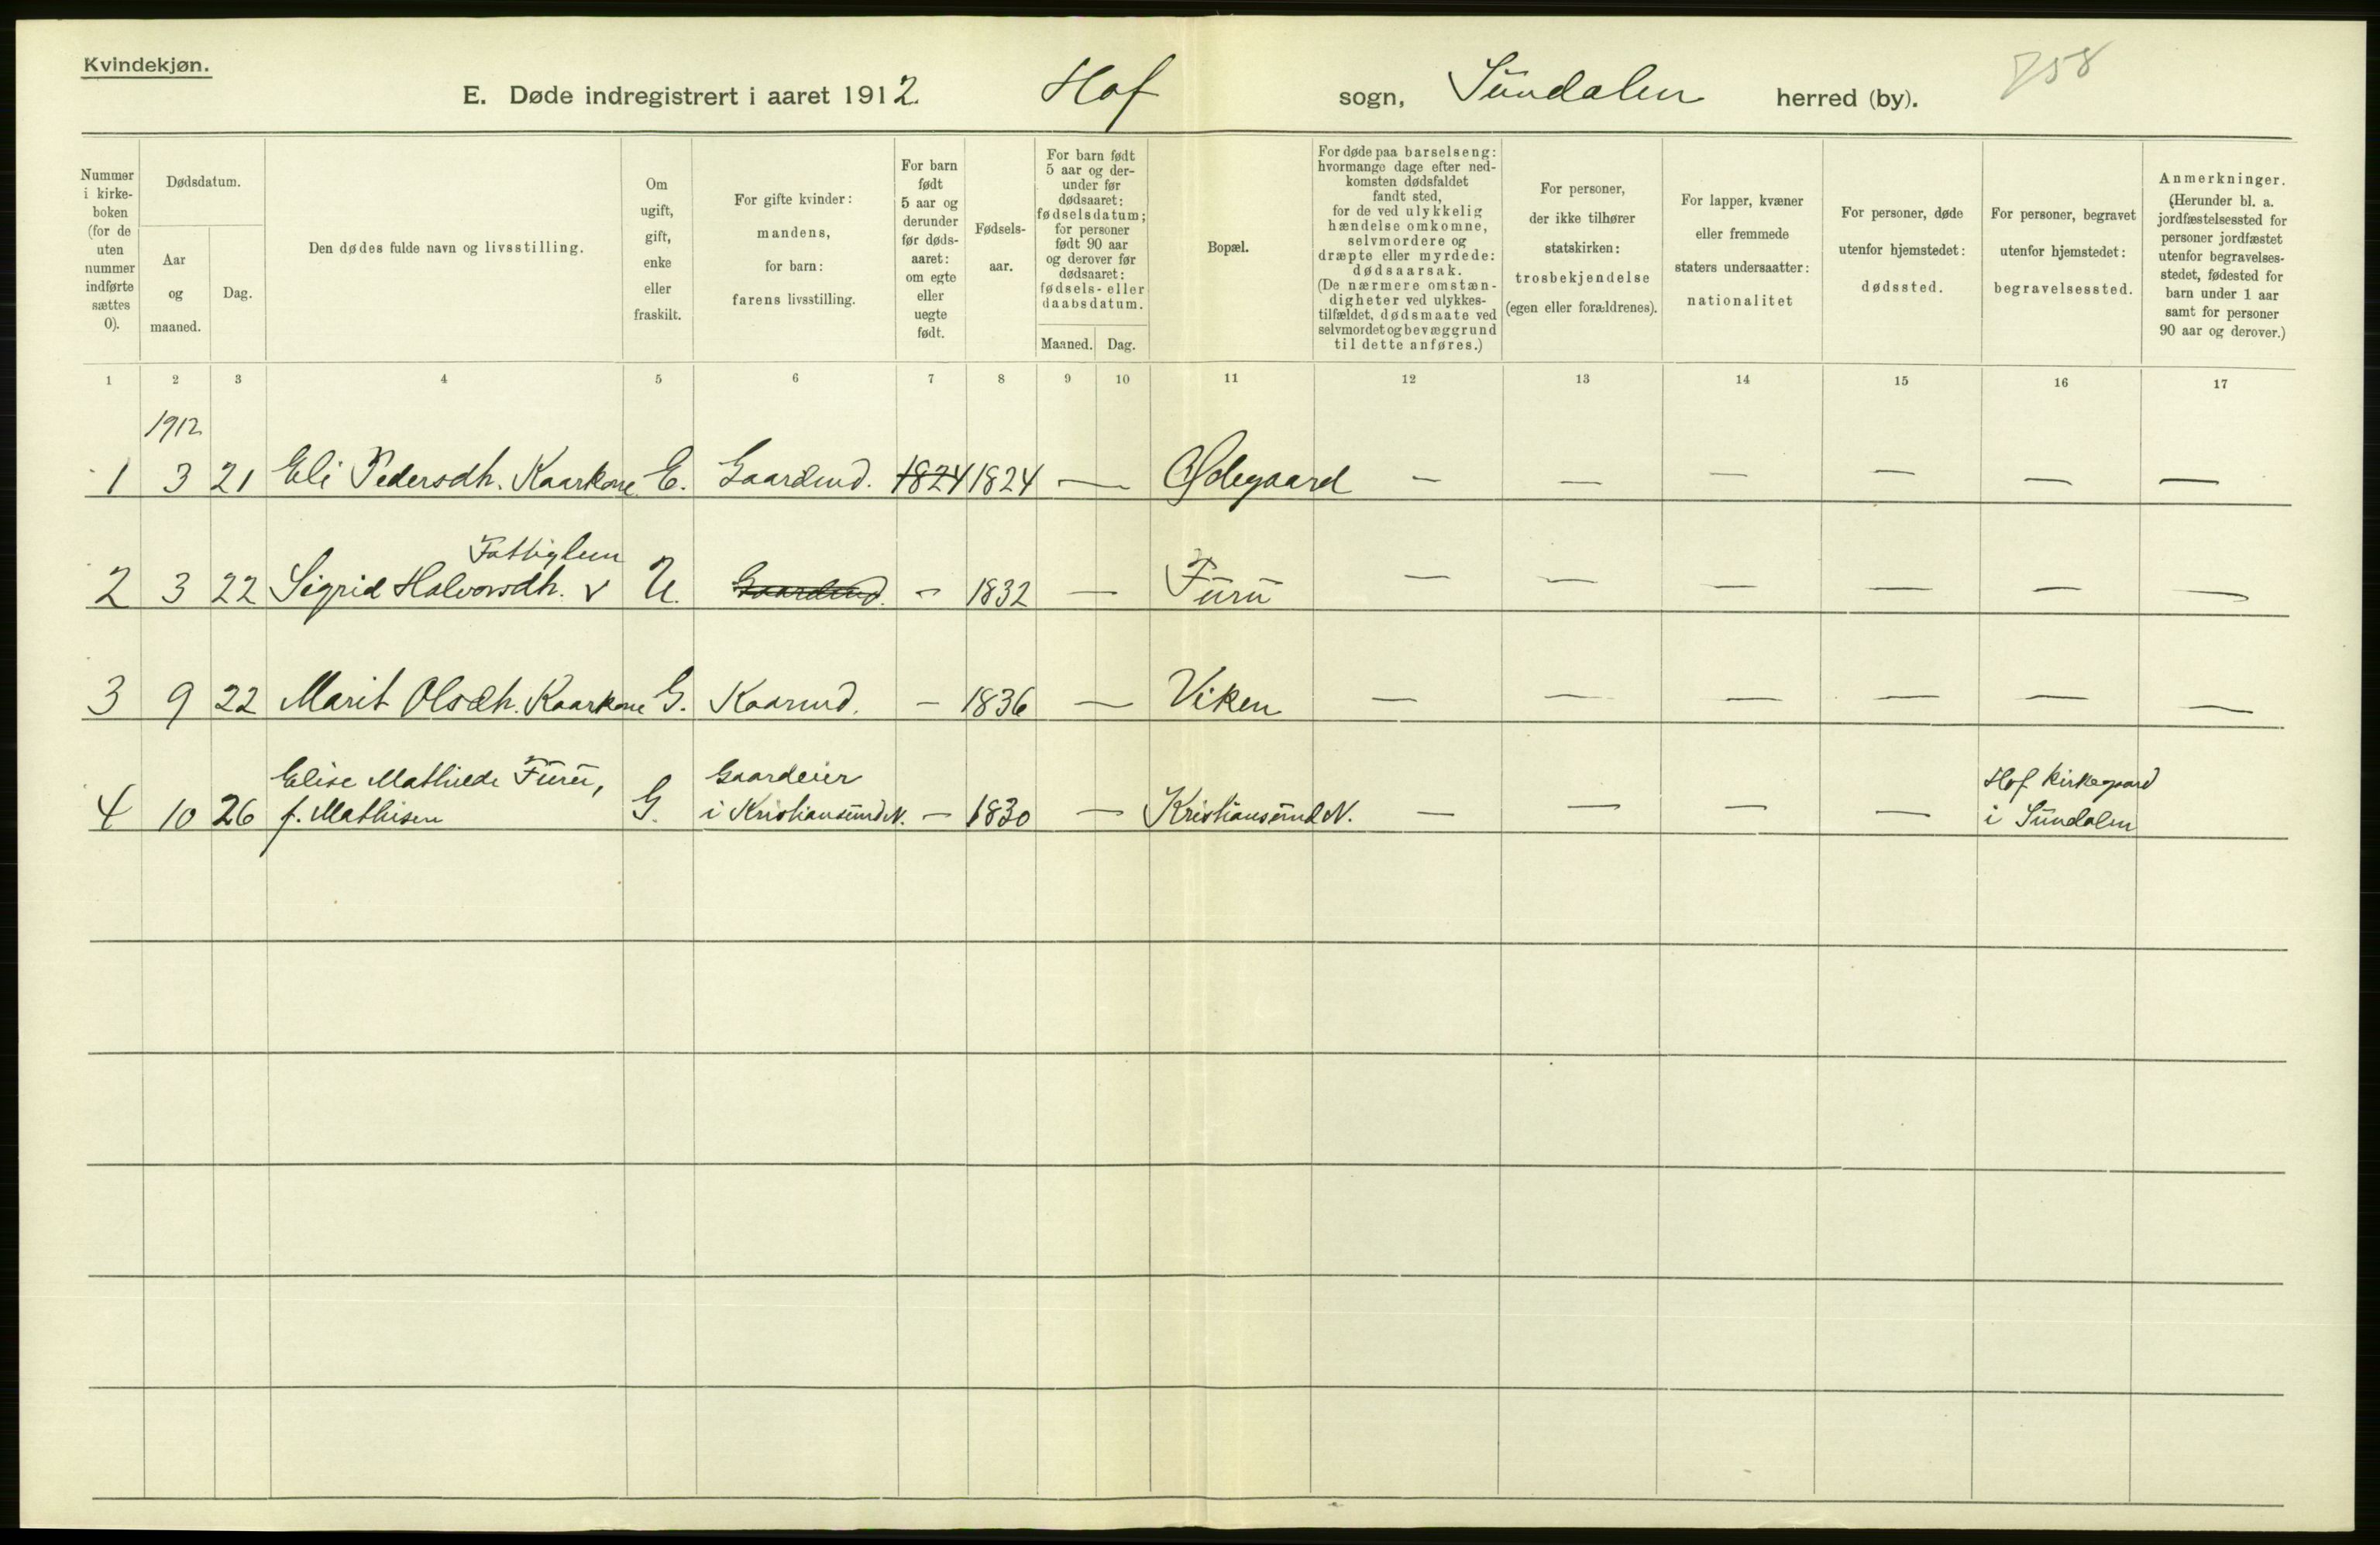 Kvindekjøn.
E. Døde indregistrert i aaret 1912. Hof sogn, Sundalen herred (by). 758
Nummer i kirke-boken (for de uten nummer indførte sættes 0).
Dødsdatum.
Aar og maaned.
Dag.
Den dødes fulde navn og livsstilling.
Om ugift, gift, enke eller fraskilt.
For gifte kvinder: mandens, for barn: farens livsstilling.
For barn født 5 aar og derunder før døds-aaret: om egte eller uegte født.
Fødsels-aar.
For barn født 5 aar og der-under før dødsaaret: fødselsdatum; for personer født 90 aar og derover før dødsaaret: fødsels- eller daabsdatum.
Maaned. Dag.
Bopæl.
For døde paa barselseng: hvormange dage efter ned-komsten dødsfaldet fandt sted, for de ved ulykkelig hændelse omkomne, selvmordere og dræpte eller myrdede: dødsaarsak. (De nærmere omstæn-digheter ved ulykkes-tilfældet, dødsmaate ved selvmordet og bevæggrund til dette anføres.)
For personer, der ikke tilhører statskirken: trosbekjendelse (egen eller forældrenes).
For lapper, kvæner eller fremmede staters undersaatter: nationalitet
For personer, døde utenfor hjemstedet: dødssted.
For personer, begravet utenfor hjemstedet: begravelsessted.
Anmerkninger. (Herunder bl. a. jordfæstelsessted for personer jordfæstet utenfor begravelses-stedet, fødested for barn under 1 aar samt for personer 90 aar og derover.)
1 2 3 4 5 6 7 8 9 10 11 12 13 14 15 16 17
1912
1 3 21 Eli Pedersdh. Kaarkone E. Gaardmd. 1824 1824 — Ødegaard — — — — — —
Fattiglem
2 3 22 Sigrid Halvorsdh. v U. Gaardmd. — 1832 — Furu — — — — — —
3 9 22 Marit Olsdh. Kaarkone G. Kaarmd. — 1836 — Viken — — — — — —
Elise Mathilde Furu, Gaardeier Hof kirkegaard
4 10 26 f. Mathisen G. i Kristiansund N. — 1830 — Kristiansund N. — — — — i Sundalen